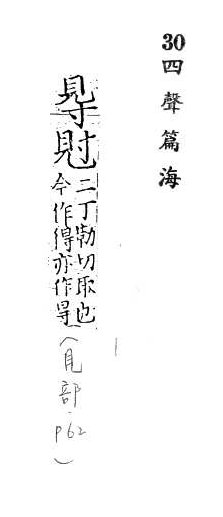 30 四聲篇海
䙷
二丁勒切取也
今作得亦作㝵
(見部.P62)